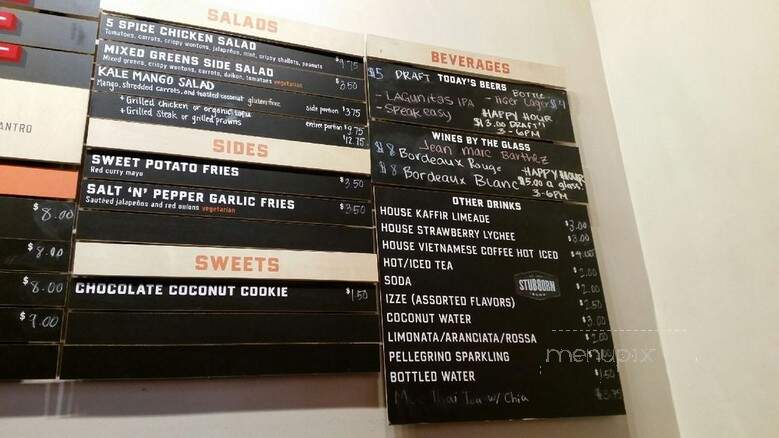 ANTRO
$8.00
$8.00
$8.00
$9.00
SALADS
5 SPICE CHICKEN SALAD
Tomatoes, carrots, crispy wontons, jalapeños, mint, crispy shallots, peanuts $9.75
MIXED GREENS SIDE SALAD
Mixed greens, crispy wontons, carrots, daikon, tomatoes vegetarian $3.50
KALE MANGO SALAD
Mango, shredded carrots, and toasted coconut gluten free
side portion $3.75
+ Grilled chicken or organic tofu entree portion $9.75
+ Grilled steak or grilled prawns $12.75
SIDES
SWEET POTATO FRIES
Red curry mayo $3.50
SALT 'N' PEPPER GARLIC FRIES
Sautéed jalapeños and red onions vegetarian $3.50
SWEETS
CHOCOLATE COCONUT COOKIE $1.50
BEVERAGES
TODAY'S BEERS
$5 DRAFT BOTTLE
- LAGUNITAS IPA - Tiger Lager $4
- Speakeasy HAPPY HOUR
$3.00 DRAFT!!
3-6PM
WINES BY THE GLASS
Jean Marc Barthez
$8 Bordeaux Rouge HAPPY HOUR
$8 Bordeaux Blanc $5.00 a glass!
3-6PM
OTHER DRINKS
HOUSE KAFFIR LIMEADE $3.00
HOUSE STRAWBERRY LYCHEE $3.00
HOUSE VIETNAMESE COFFEE HOT ICED $4.00
HOT/ICED TEA $2.00
SODA STUBBORN SODA $2.00
IZZE (ASSORTED FLAVORS) $2.50
COCONUT WATER $3.00
LIMONATA/ARANCIATA/ROSSA $2.00
PELLEGRINO SPARKLING
BOTTLED WATER $1.50
Thai Tea w/ Chia $3.75
menupix